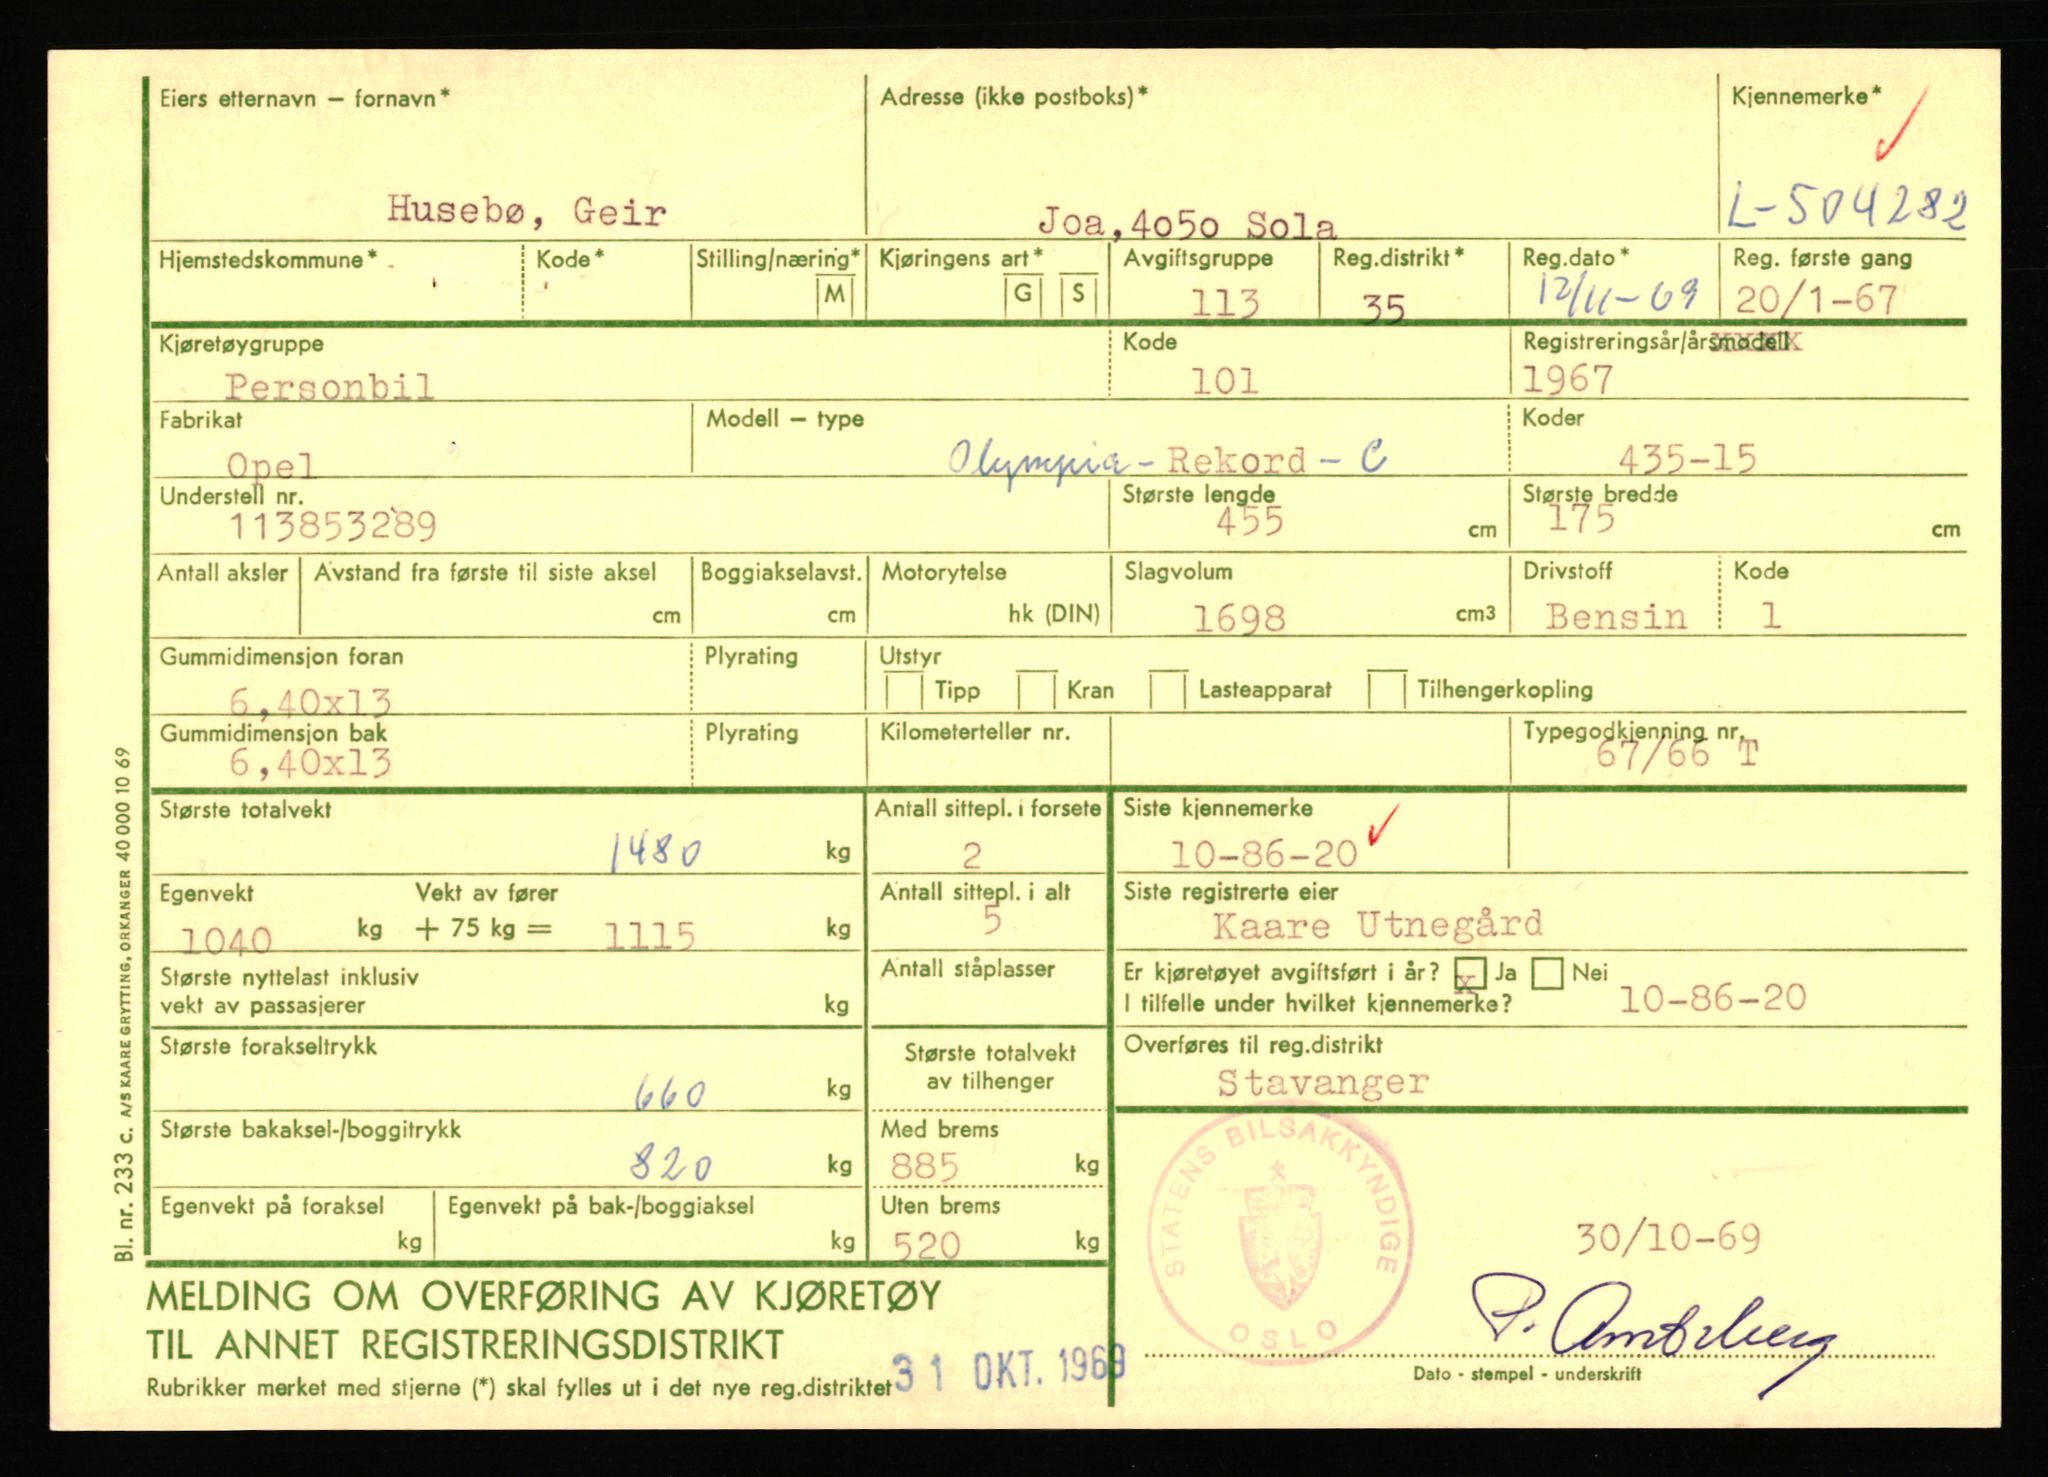 Eiers etternavn – fornavn* Adresse (ikke postboks)* Kjennemerke*
Husebø, Geir Joa,4050 Sola L-504282
Hjemstedskommune* Kode* Stilling/næring* Kjøringens art* Avgiftsgruppe Reg.distrikt* Reg.dato* Reg. første gang
M G S 113 35 12/11-69 20/1-67
Kjøretøygruppe Kode Registreringsår/årsmodell
Personbil 101 1967
Fabrikat Modell – type Koder
Opel Olympia - Rekord - C 435-15
Understell nr. Største lengde Største bredde
113853289 455 cm 175 cm
Antall aksler Avstand fra første til siste aksel Boggiakselavst. Motorytelse Slagvolum Drivstoff Kode
cm cm hk (DIN) 1698 cm3 Bensin 1
Gummidimensjon foran Plyrating Utstyr
6,40x13 Tipp Kran Lasteapparat Tilhengerkopling
Gummidimensjon bak Plyrating Kilometerteller nr. Typegodkjenning nr.
6,40x13 67/66 T
Største totalvekt Antall sittepl. i forsete Siste kjennemerke
1480 kg 2 10-86-20
Egenvekt Vekt av fører Antall sittepl. i alt Siste registrerte eier
1040 kg + 75 kg = 1115 kg 5 Kaare Utnegård
Største nyttelast inklusiv Antall ståplasser Er kjøretøyet avgiftsført i år? x Ja Nei
vekt av passasjerer kg I tilfelle under hvilket kjennemerke? 10-86-20
Største forakseltrykk Største totalvekt Overføres til reg.distrikt
660 kg av tilhenger Stavanger
Største bakaksel-/boggitrykk Med brems
820 kg 885 kg
Egenvekt på foraksel Egenvekt på bak-/boggiaksel Uten brems
kg kg 520 kg
STATENS BILSAKKYNDIGE
OSLO
30/10-69
P. Amtzberg
MELDING OM OVERFØRING AV KJØRETØY
TIL ANNET REGISTRERINGSDISTRIKT
Dato - stempel - underskrift
Rubrikker merket med stjerne (*) skal fylles ut i det nye reg.distriktet 31 OKT. 1969
Bl. nr. 233 c. A/S KAARE GRYTTING, ORKANGER 40 000 10 69